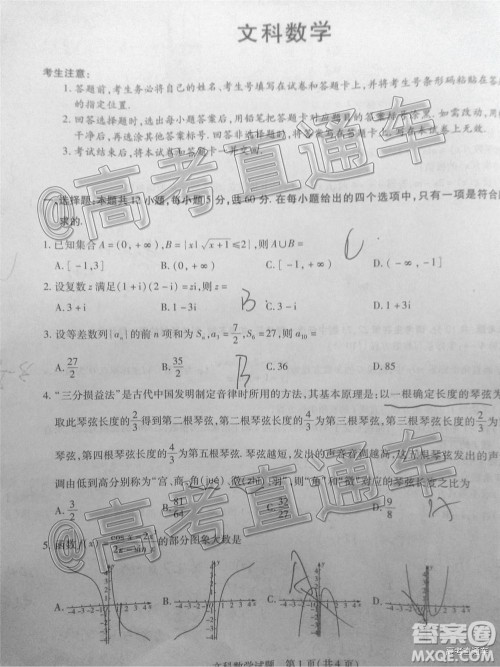 文科数学
考生注意:
1. 答题前,考生务必将自己的姓名、考生号填写在试卷和答题卡上,并将考生号条形码粘贴在答题卡上
的指定位置.
2. 回答选择题时,选出每小题答案后,用铅笔把答题卡对应题目的答案标号涂黑. 如需改动,用橡皮擦
干净后,再选涂其他答案标号. 回答非选择题时,将答案写在答题卡上. 写在本试卷上无效.
3. 考试结束后,将本试卷和答题卡一并交回.
一、选择题:本题共12小题,每小题5分,共60分. 在每小题给出的四个选项中,只有一项是符合题
求的.
1. 已知集合A=(0,+∞),B={x|√x+1≤2},则A∪B= C
A. [-1,3] B. (0,+∞) C. [-1,+∞) D. (-1,+∞)
2. 设复数z满足(1+i)(2-i)=zi,则z= B
A. 3+i B. 1-3i C. 3-i D. 1+3i
3. 设等差数列{aₙ}的前n项和为Sₙ,a₃=7/2,S₉=27,则a₁₀=
A. 27/2 B. 35/2 C. 36 D. 85
B
4. “三分损益法”是古代中国发明制定音律时所用的方法,其基本原理是:以一根确定长度的琴弦为
取此琴弦长度的2/3得到第二根琴弦,第二根琴弦长度的4/3为第三根琴弦,第三根琴弦长度的2/3为
琴弦,第四根琴弦长度的4/3为第五根琴弦. 琴弦越短,发出的声音音调越高,这五根琴弦发出的声
调由低到高分别称为“宫、商、角(jué)、徵(zhǐ)、羽”,则“角”和“徵”对应的琴弦长度之比为
A. 3/2 B. 81/64 C. 32/27 D. 9/8
5. 函数f(x)= 的部分图象大致是
A. B. C. D.
文科数学试题 第1页(共4页)
@高考直通车
@高考直通车
答案圈
MXQE.COM